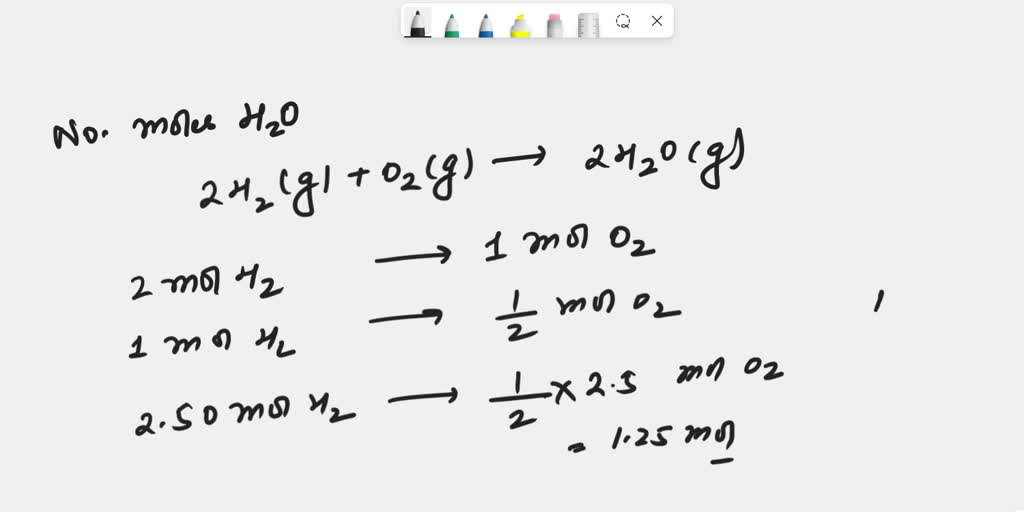 No. moles H₂O
2H₂(g) + O₂(g) ⟶ 2H₂O(g)
2 mol H₂ ⟶ 1 mol O₂
1 mol H₂ ⟶ 1/2 mol O₂
2.50 mol H₂ ⟶ 1/2 × 2.5 mol O₂
= 1.25 mol